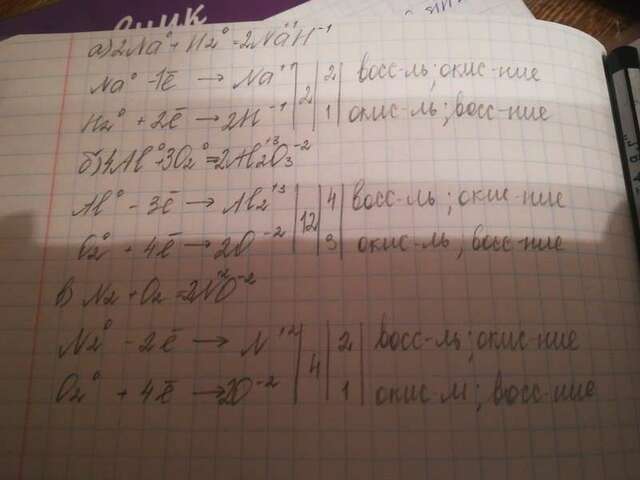 ник
а) 2Na⁰ + H₂⁰ = 2Na⁺¹H⁻¹
Na⁰ - 1ē → Na⁺¹ | 2 | 2 | восс-ль; окис-ние
H₂⁰ + 2ē → 2H⁻¹ | 1 | окис-ль; восс-ние
б) 4Al⁰ + 3O₂⁰ = 2Al₂⁺³O₃⁻²
Al⁰ - 3ē → Al₂⁺³ | 12 | 4 | восс-ль; окис-ние
O₂⁰ + 4ē → 2O⁻² | 3 | окис-ль, восс-ние
в) N₂ + O₂ = 2N⁺²O⁻²
N₂⁰ - 2ē → N⁺² | 4 | 2 | восс-ль; окис-ние
O₂⁰ + 4ē → 2O⁻² | 1 | окис-ль; восс-ние